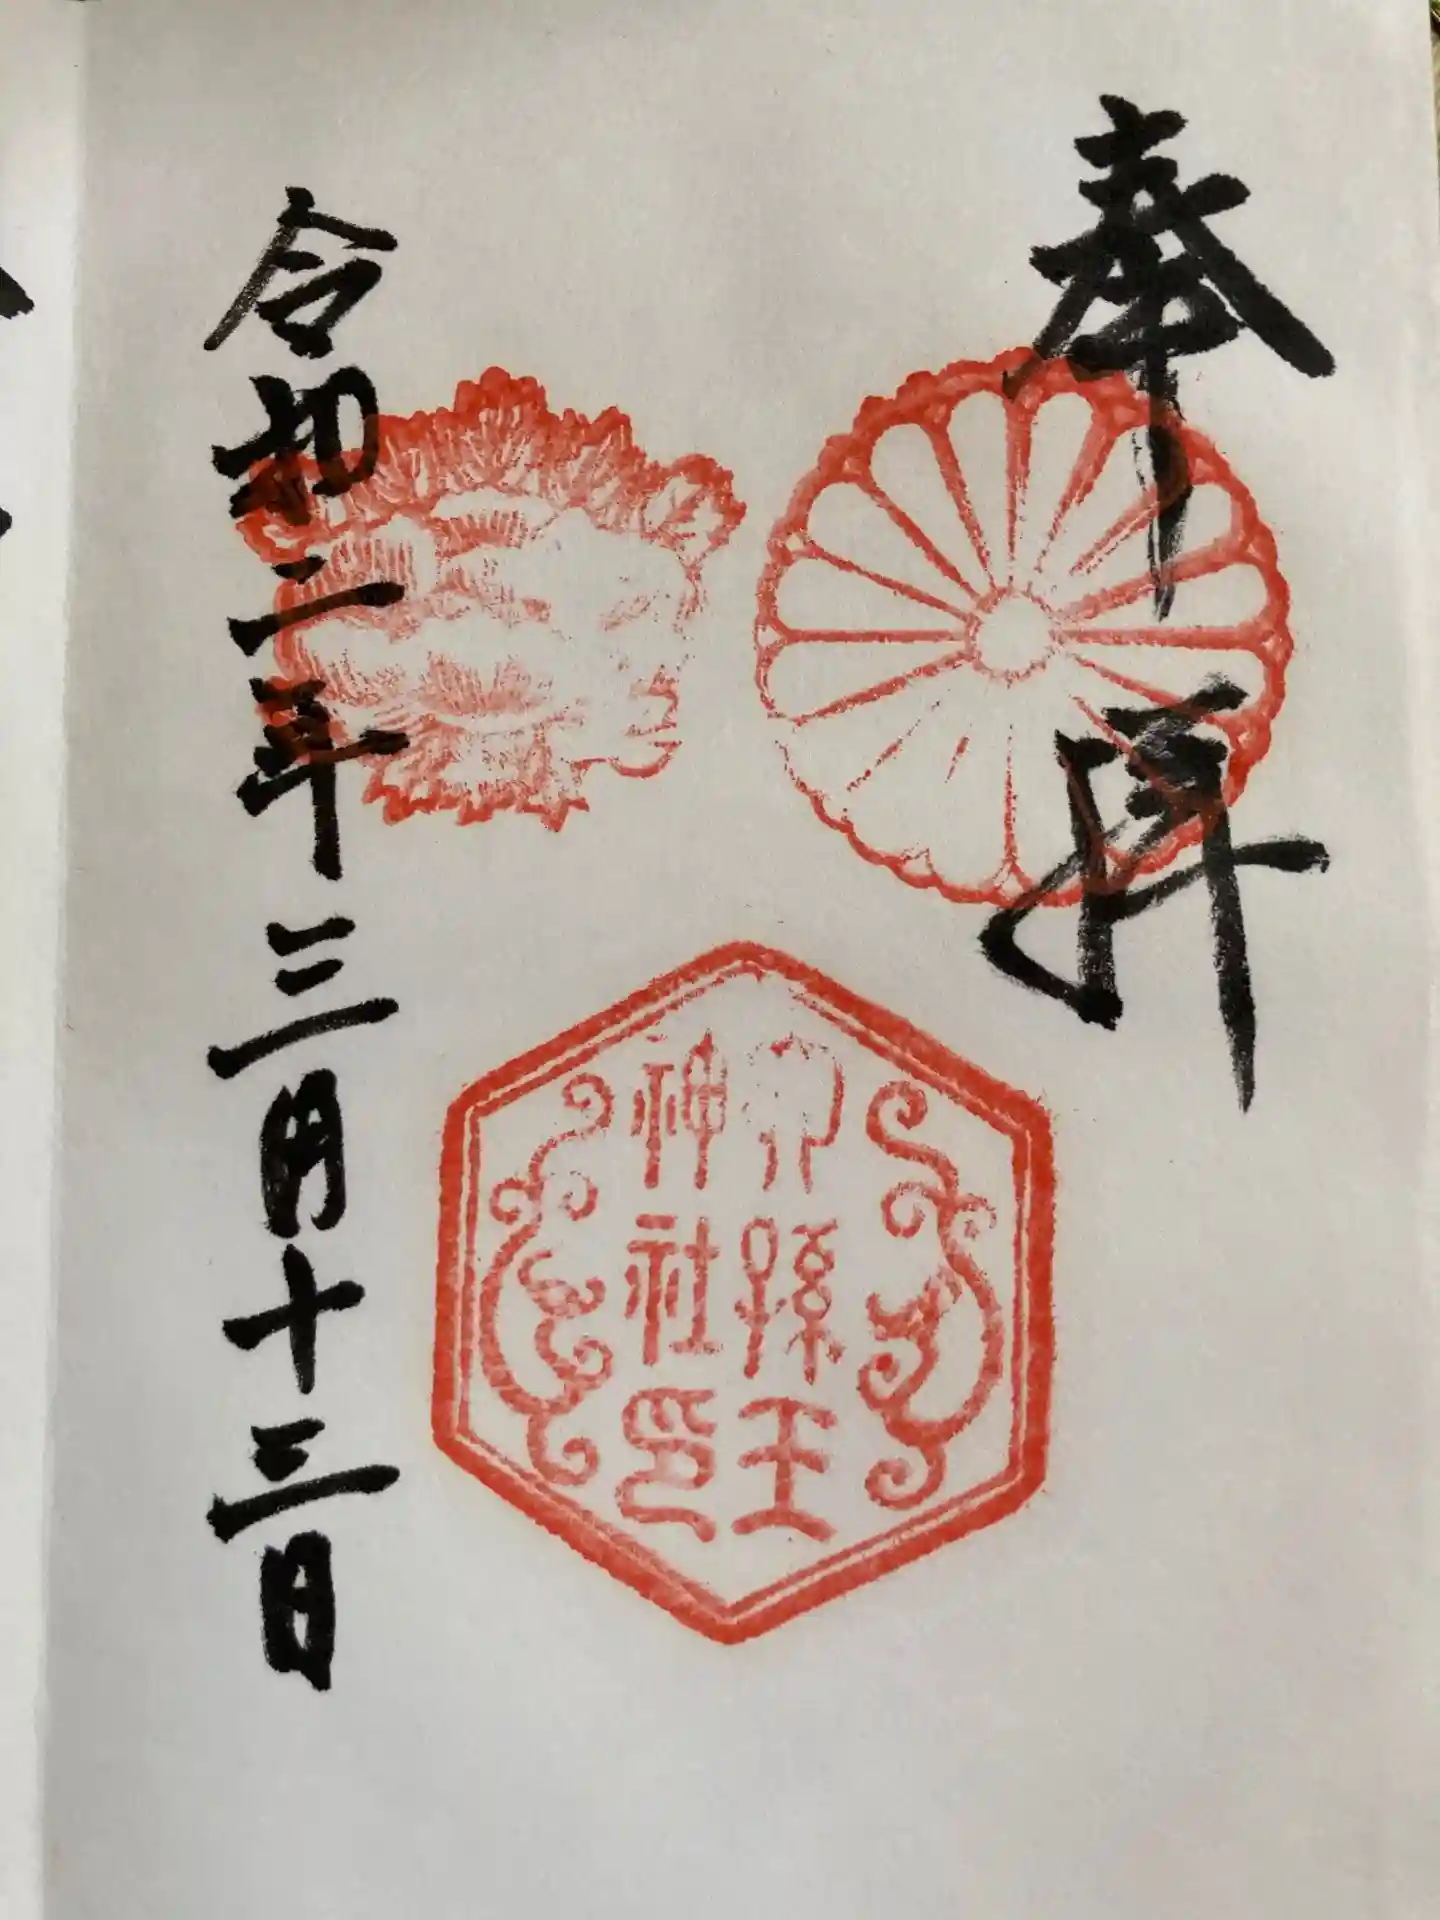 奉拝
六孫王
神社印
令和二年三月十三日